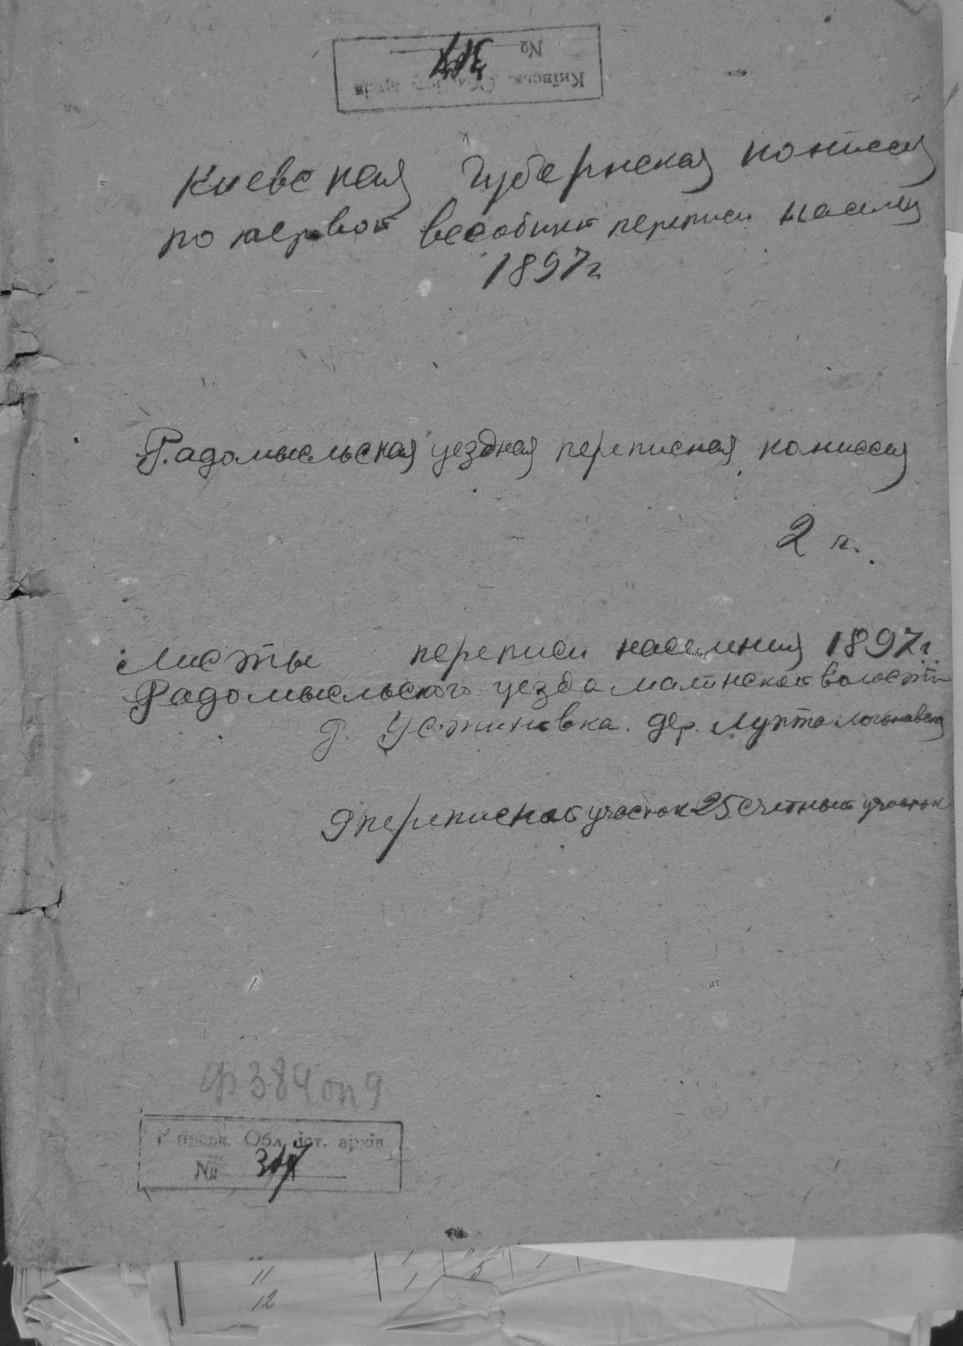 Київськ. Обл. іст. архів
№
Киевская Губернская комиссия
по первой всеобщей переписи населен
1897 г
Радомысльская уездная переписная комиссия
2 г.
Листы переписи населения 1897 г.
Радомысльского уезда Малинской волости
д. Устиновка. дер.
9 переписной участок 25 счетный участок
ф 384 оп 9
Київськ. Обл. іст. архів
№
11 1 5 1
12